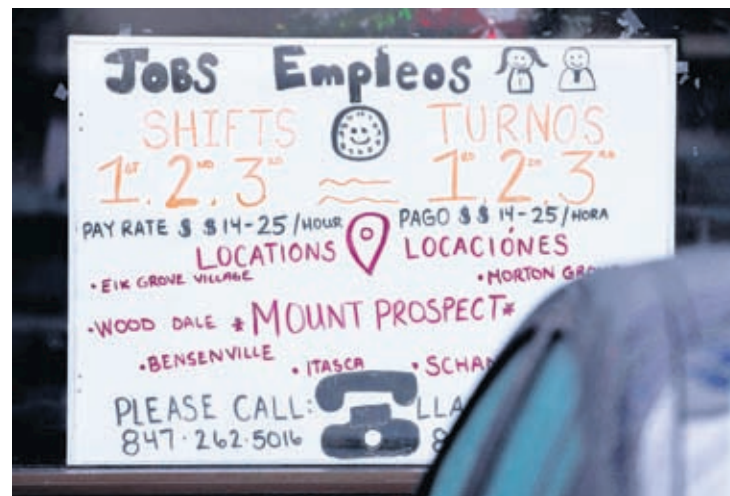 JOBS Empleos
SHIFTS TURNOS
1ST. 2ND. 3RD 1RO 2DO 3RO
PAY RATE $ $14-25/HOUR PAGO $$ 14-25/HORA
LOCATIONS LOCACIÓNES
• ElK GROVE VILLAGE • MORTON
• WOOD DALE * MOUNT PROSPECT *
• BENSENVILLE • ITASCA
PLEASE CALL:
847·262·5016